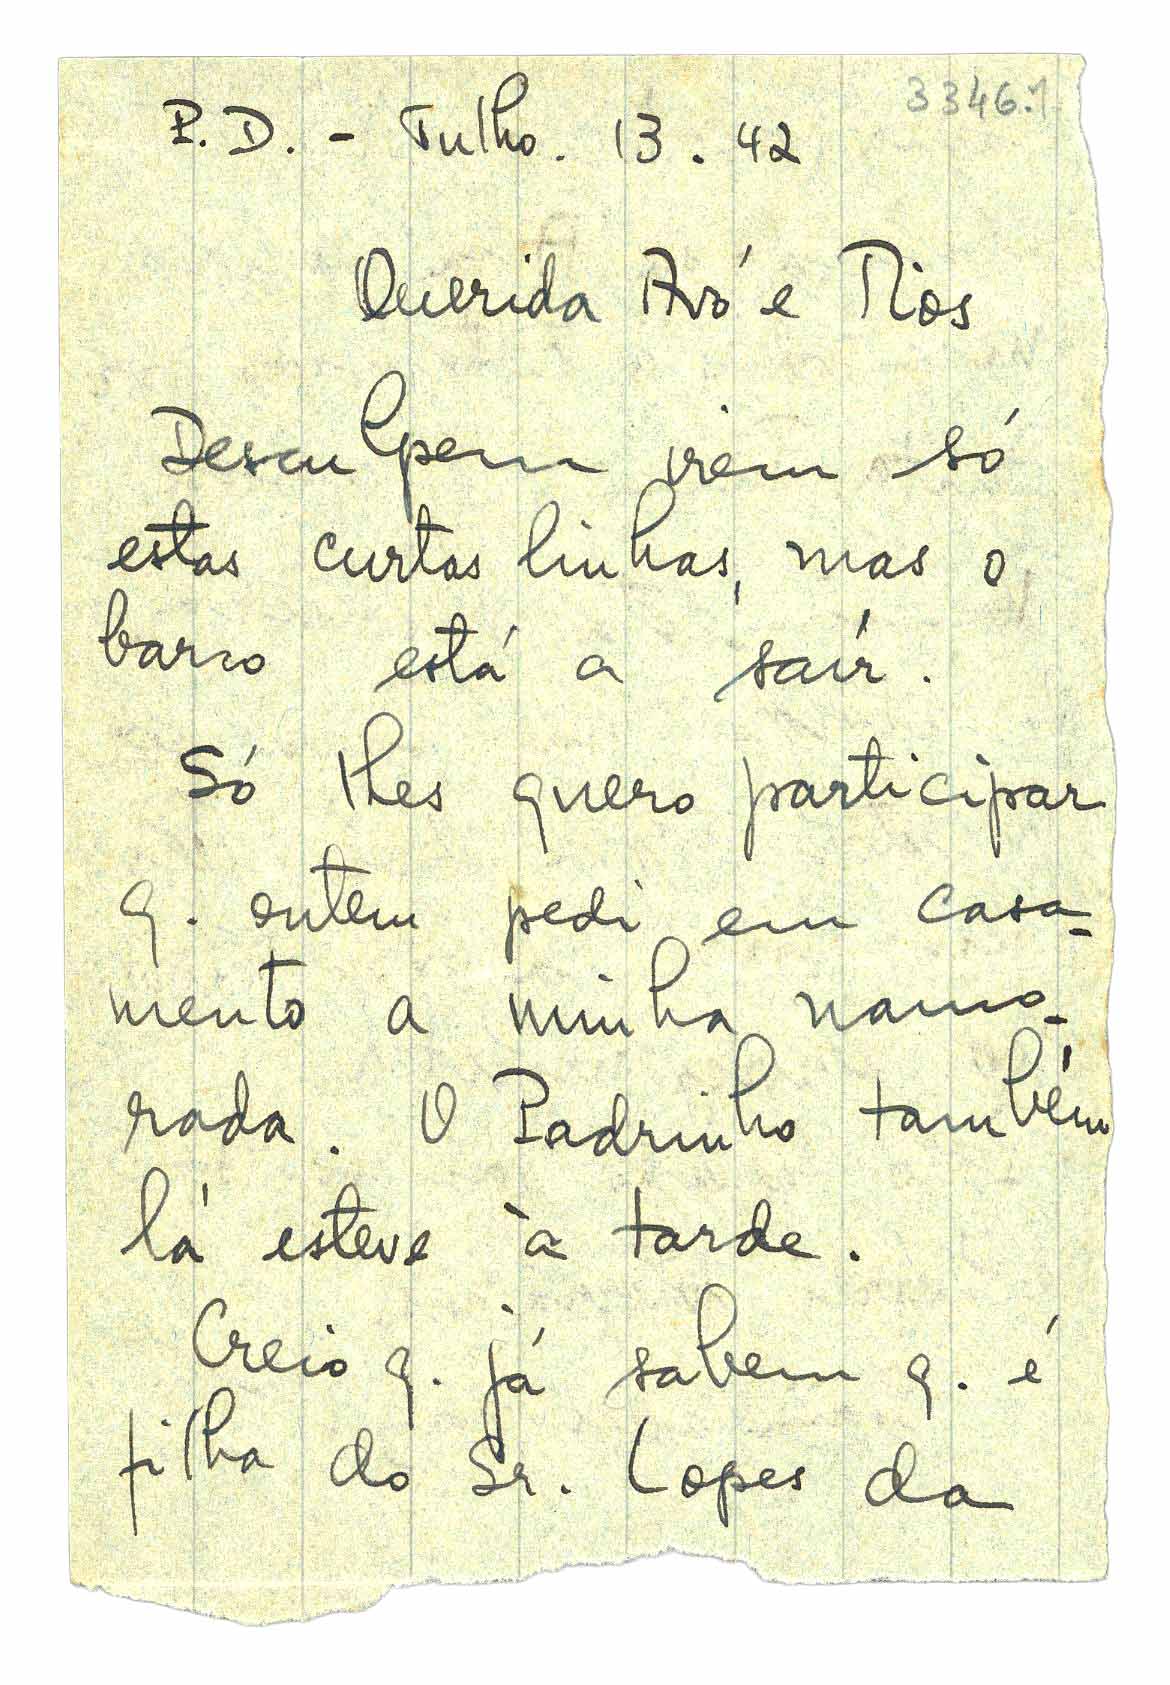 3346.1
P.D. - Julho. 13. 42
Querida Avó e Tios
Desculpem irem só
estas curtas linhas, mas o
barco está a sair.
Só lhes quero participar
q. ontem pedi em casa-
mento a minha namo-
rada. O Padrinho também
lá esteve à tarde.
Creio q. já sabem q. é
filha do Sr. Lopes da